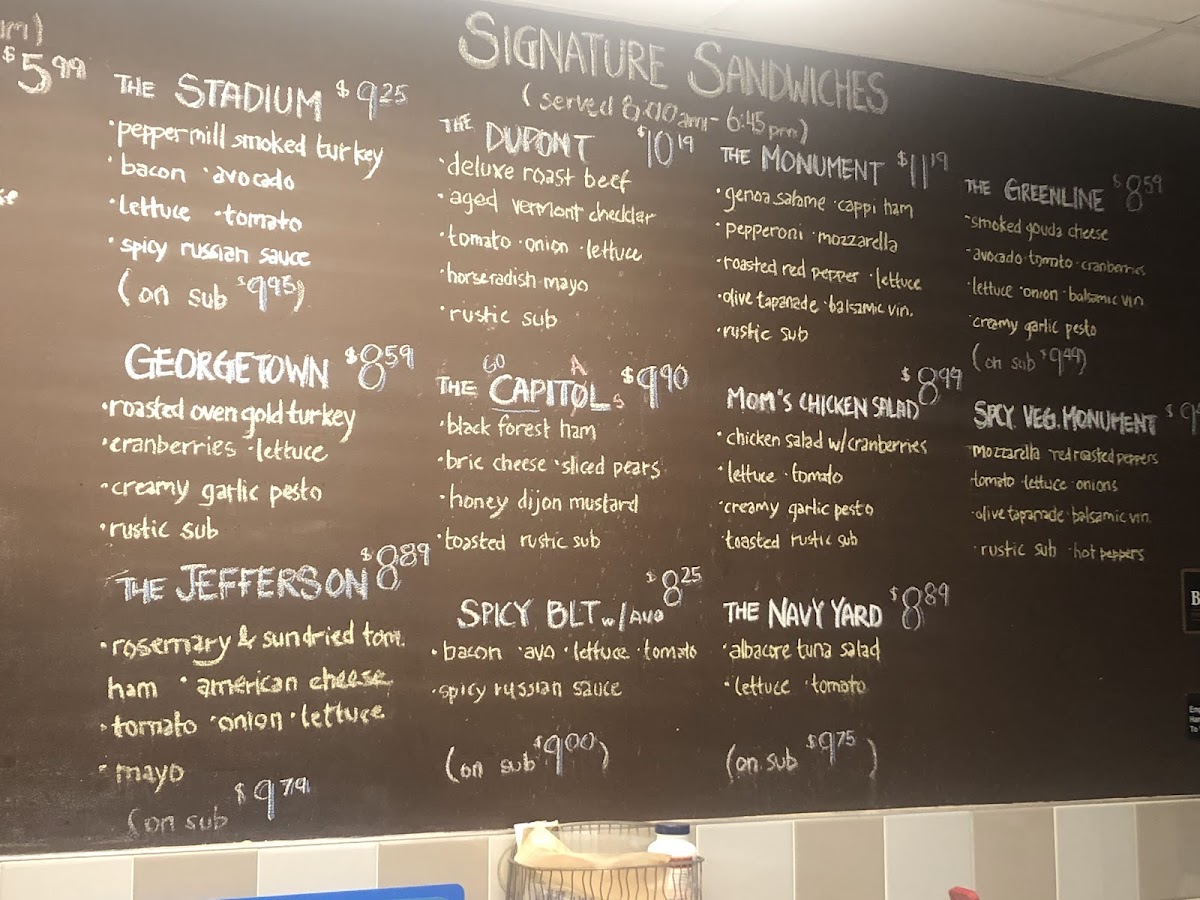 $5.99
SIGNATURE SANDWICHES
(served 8:00am - 6:45pm)
THE STADIUM $9.25
·peppermill smoked turkey
·bacon ·avocado
·lettuce ·tomato
·spicy russian sauce
(on sub $9.95)
GEORGETOWN $8.59
·roasted oven gold turkey
·cranberries ·lettuce
·creamy garlic pesto
·rustic sub
THE JEFFERSON $8.89
·rosemary & sundried tom.
ham ·american cheese
·tomato ·onion ·lettuce
·mayo
(on sub $9.79
THE DUPONT $10.19
·deluxe roast beef
·aged vermont cheddar
·tomato ·onion ·lettuce
·horseradish mayo
·rustic sub
GO A
THE CAPITOLS $9.90
·black forest ham
·brie cheese ·sliced pears
·honey dijon mustard
·toasted rustic sub
SPICY BLT w/AVO $8.25
·bacon ·avo ·lettuce ·tomato
·spicy russian sauce
(on sub $9.00)
THE MONUMENT $11.19
·genoa salame ·cappi ham
·pepperoni ·mozzarella
·roasted red pepper ·lettuce
·olive tapanade ·balsamic vin.
·rustic sub
MOM'S CHICKEN SALAD $8.99
·chicken salad w/cranberries
·lettuce ·tomato
·creamy garlic pesto
·toasted rustic sub
THE NAVY YARD $8.89
·albacore tuna salad
·lettuce ·tomato
(on sub $9.75)
THE GREENLINE $8.59
·smoked gouda cheese
·avocado ·tomato ·cranberries
·lettuce ·onion ·balsamic vin
·creamy garlic pesto
(on sub $9.49)
SPCY VEG. MONUMENT $9
·mozzarella ·red roasted peppers
·tomato ·lettuce ·onions
·olive tapanade ·balsamic vin.
·rustic sub ·hot peppers